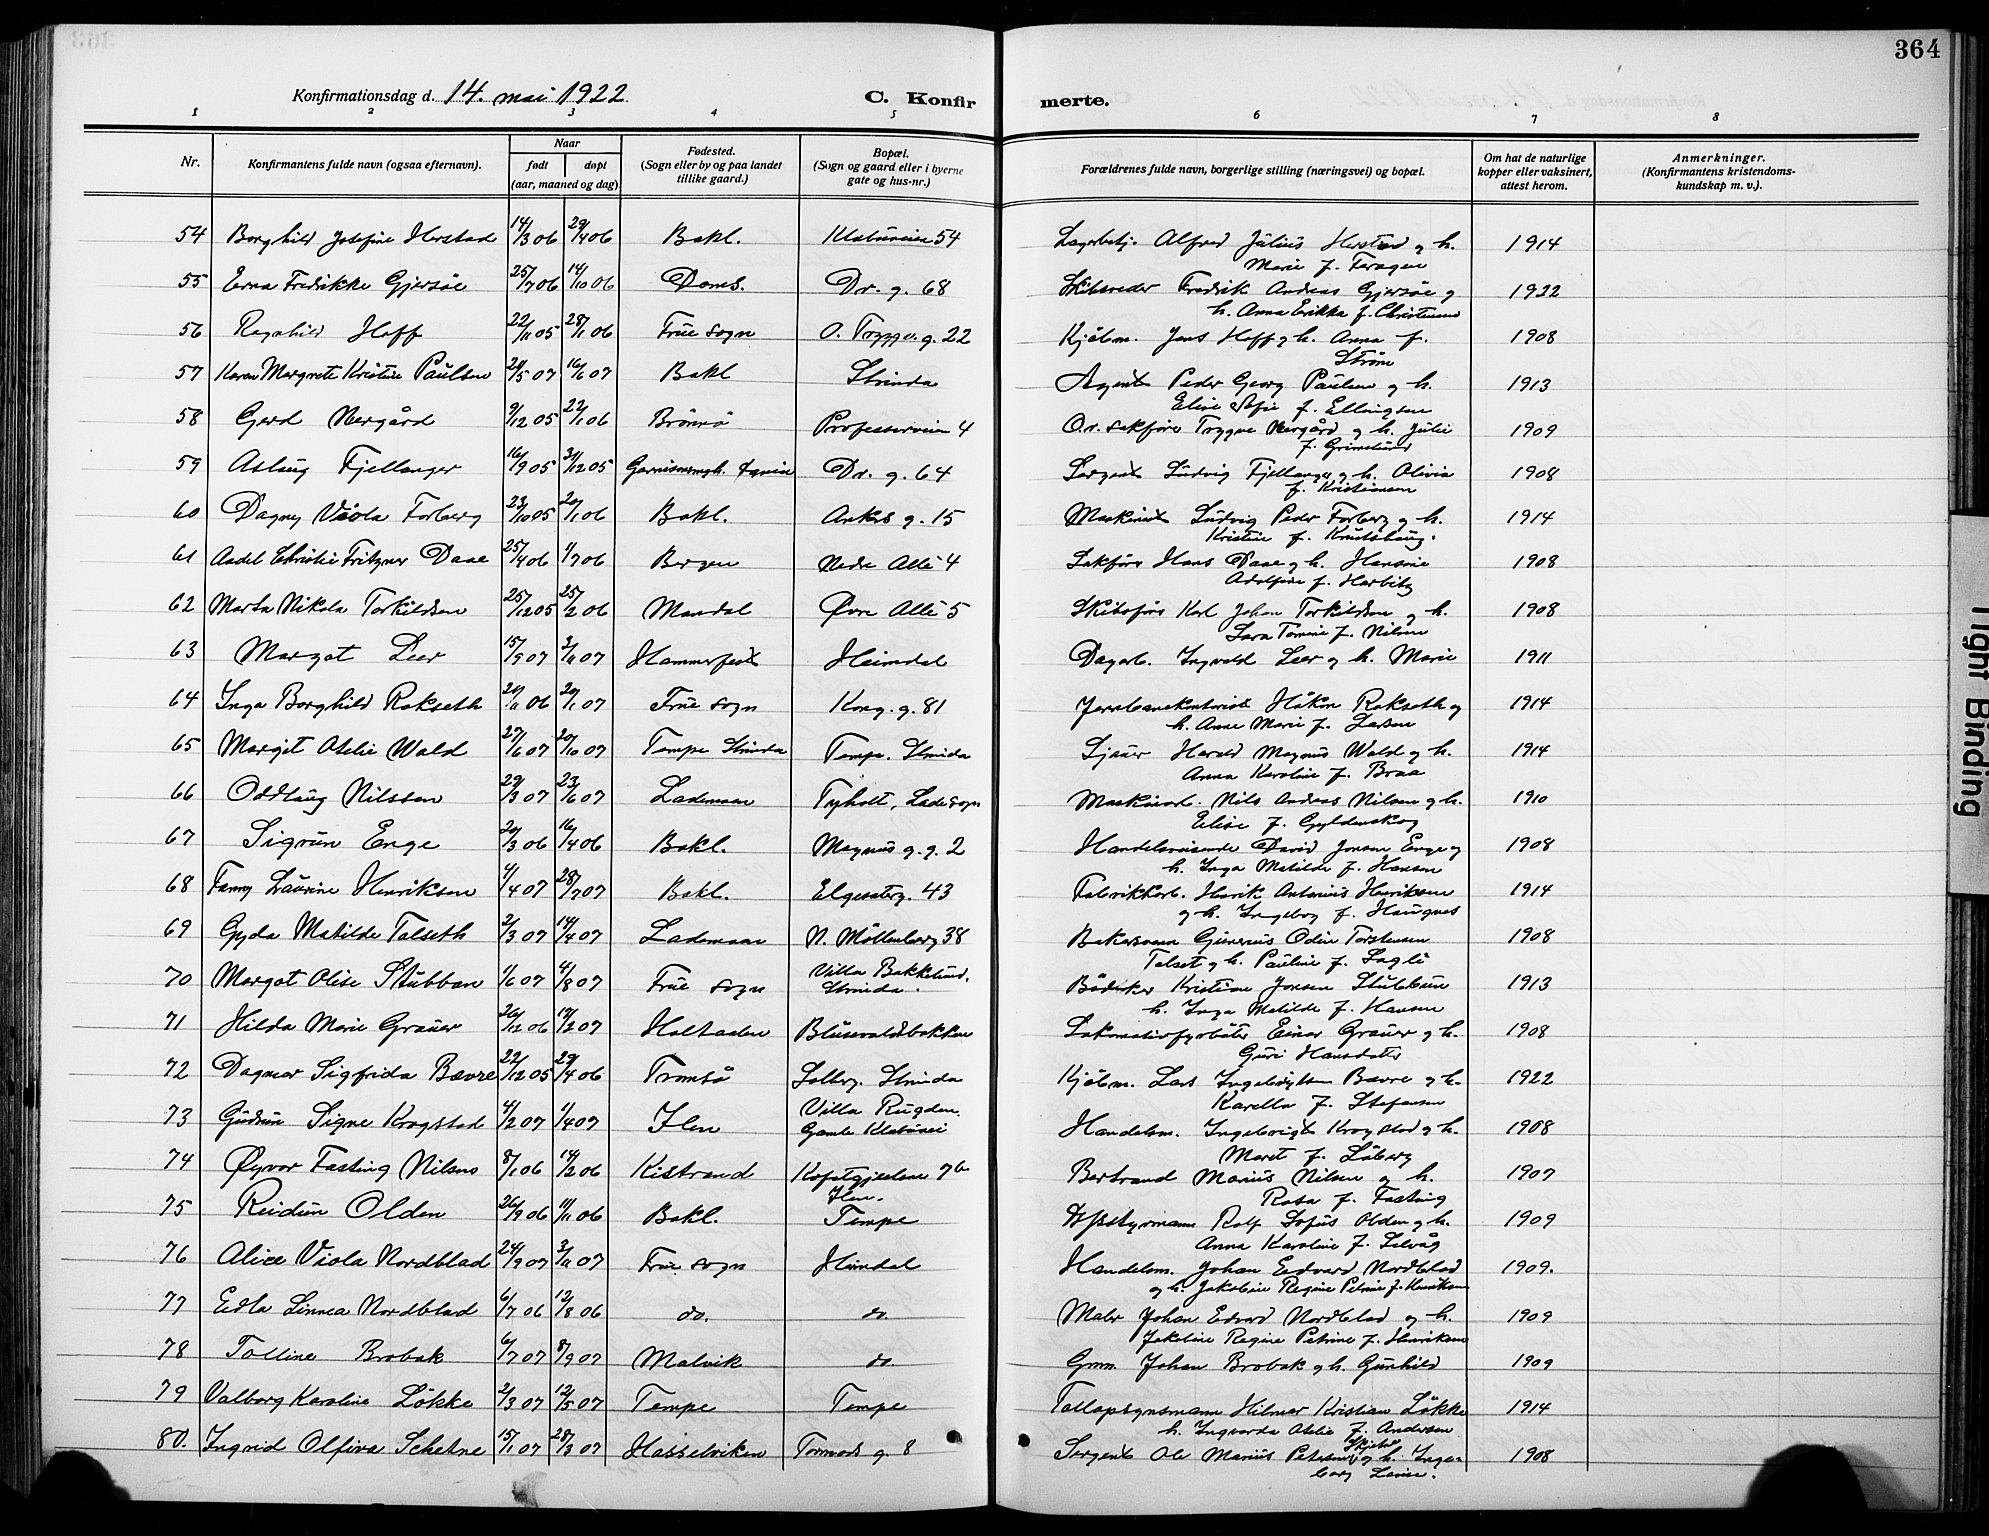 364
Konfirmationsdag d. 14. mai 1922.
C. Konfir
merte.
1 2 3 4 5 6 7 8
Nr.
Konfirmantens fulde navn (ogsaa efternavn).
Naar
født døpt
(aar, maaned og dag)
Fødested.
(Sogn eller by og paa landet
tillike gaard.)
Bopæl.
(Sogn og gaard eller i byerne
gate og hus-nr.)
Forældrenes fulde navn, borgerlige stilling (næringsvei) og bopæl.
Om hat de naturlige
kopper eller vaksinert,
attest herom.
Anmerkninger.
(Konfirmantens kristendoms-
kundskap m. v.).
54 Borghild Josefine Herstad 14/3 06 29/4 06 Bakl. Klabuveien 54 Lagerbetj. Alfred Julius Herstad og h. 1914
Marie f. Feragen
55 Erna Fredrikke Gjersøe 25/7 06 14/10 06 Doms. Dr. g. 68 Skibsreder Fredrik Andreas Gjersøe og 1922
h. Anna Erikka f. Christensen
56 Ragnhild Hoff 22/11 05 28/1 06 Frue sogn O. Tryggv. g. 22 Kjøbm. Jens Hoff og h. Anna f. 1908
Strøm
57 Karen Margrete Kristine Paulsen 5 07 16/6 07 Bakl Strinda Agent Peder Georg Paulsen og h. 1913
Elise Sofie f. Ellingsen
58 Gerd Nergård 9/12 05 22/1 06 Brønnø Professorveien 4 O.r. sakfører Trygve Nergård og h. Julie 1909
f. Grimelund
59 Aslaug Fjellanger 16/9 05 31/12 05 Dr. g. 64 Sergent Ludvig Fjellanger og h. Olivia 1908
f. Kristiansen
60 Dagny Viola Forberg 23/10 05 20/1 06 Bakl. Ankers g. 15 Maskinist Ludvig Peder Forberg og h. 1914
Kristine f. Knutshaug.
61 Aadel Christie Fritzner Daae 25/4 06 1/7 06 Bergen Nedre Alle 4 Sakfører Hans Daae og h. Hansine 1908
Adolfine f. Herbitz
62 Marta Nikola Torkildsen 25/12 05 25/2 06 Mandal Øvre Alle 5 Skibsfører Karl Johan Torkildsen og h. 1908
Sara Tomine f. Nilsen
63 Margot Leer 15/9 07 3/11 07 Hammerfest Heimdal Dagarb. Ingvald Leer og h. Marie 1911
64 Inga Borghild Rokseth 11 06 20/1 07 Frue sogn Kong. g. 81 Jernbanekontorist Håkon Rokseth og 1914
h. Anne Marie f. Larsen
65 Margit Atelie Wold 27/6 07 20/10 07 Tempe Strinda Tempe. Strinda Sjauer Harald Magnus Wold og h. 1914
Anna Karoline f. Braa
66 Oddlaug Nilssen 29/3 07 23/6 07 Lademoen Tyholt, Lade sogn Maskinarb. Nils Andreas Nilsen og h. 1910
Elise f. Gyldenskog
67 Sigrun Enge 20/3 06 16/4 06 Bakl. Magnus g. g. 2 Handelsreisende David Jonsen Enge og 1908
h. Inga Matilde f. Hansen
68 Fanny Laurine Henriksen 1/4 07 28/7 07 Bakl. Elgesaterg. 43 Fabrikkarb. Henrik Antonius Henriksen 1914
og h. Ingeborg f. Haugnes
69 Gyda Matilde Talseth 2/3 07 14/4 07 Lademoen N. Møllenberg 38 Bakersvenn Gunerius Odin Torstensen 1908
Talset og h. Pauline f. Sagli
70 Margot Olise Stubban 1/6 07 4/8 07 Frue sogn Villa Bakkelund. Bødker Kristian Jonsen Stubbun 1913
Strinda.
h. Inga Matilde f. Hansen
71 Hilda Marie Grauer 26/12 06 17/2 07 Holtaalen Blusevoldsbakken Lokomotivfyrbøter Einar Grauer og h. 1908
Guri Hansdater
72 Dagmar Sigfrida Bævre 22/12 05 29/4 06 Tromsø Solberg. Strinda Kjøbm. Lars Ingebrigtsen Bævre og h. 1922
Karella f. Stefansen
73 Gudrun Signe Krogstad 4/2 07 1/4 07 Ilen Villa Rugden. Handelsm. Ingebrigt Krogstad og h. 1908
Gamle Klabuvei
Maret f. Løberg
74 Øyvor Fasting Nilsens 8/1 06 14/2 06 Kistrand 7b Bertrand Marius Nilsen og h. 1907
Ilen.
Rosa f. Fasting
75 Reidun Olden 26/9 06 11/11 06 Bakl. Tempe Rolf Sofus Olden og h. 1909
Anna Karoline f. Selvåg
76 Alice Viola Nordblad 24/9 07 3/11 07 Frue sogn Heimdal Handelsm. Johan Edvard Nordblad 1909.
og h. Jakobine Regine Petrine f. Henriksen
77 Edla Linnea Nordblad 6/7 06 12/8 06 do. do. Maler Johan Edvard Nordblad og h. 1909
Jakobine Regine Petrine f. Henriksen
78 Talline Brobak 6/7 07 8/9 07 Malvik do. Gmn. Johan Brobak og h. Gunhild 1909
79 Valborg Karoline Løkke 2/3 07 12/5 07 Tempe Tempe Tollopsynsmann Hilmar Kristian Løkke 1914
h. Ingvarda Atelie f. Andersen
80. Ingrid Olfine 15/1 07 28/3 07 Hasselviken Tormods g. 8 Sergent Ole Marius Petersen og h. Inge- 1908
borg Lovise.
Tight Binding